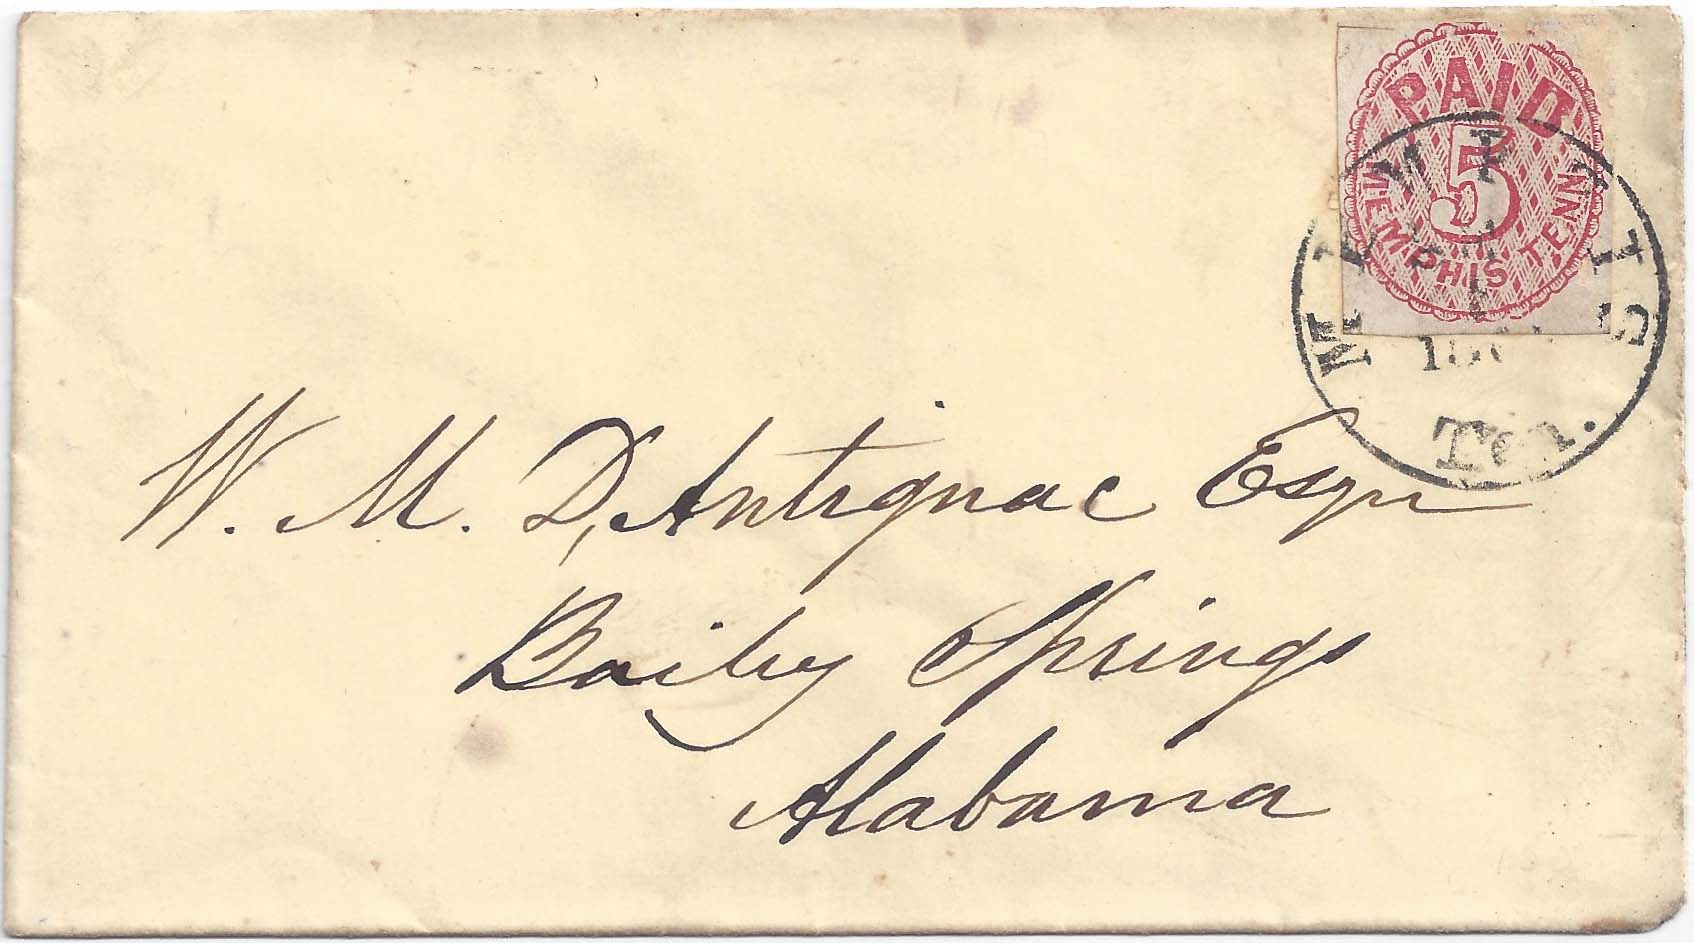 PAID
5
MEMPHIS TENN
MEMPHIS
Ten.
W. M. D'Antignac Esqr
Bailey Springs
Alabama